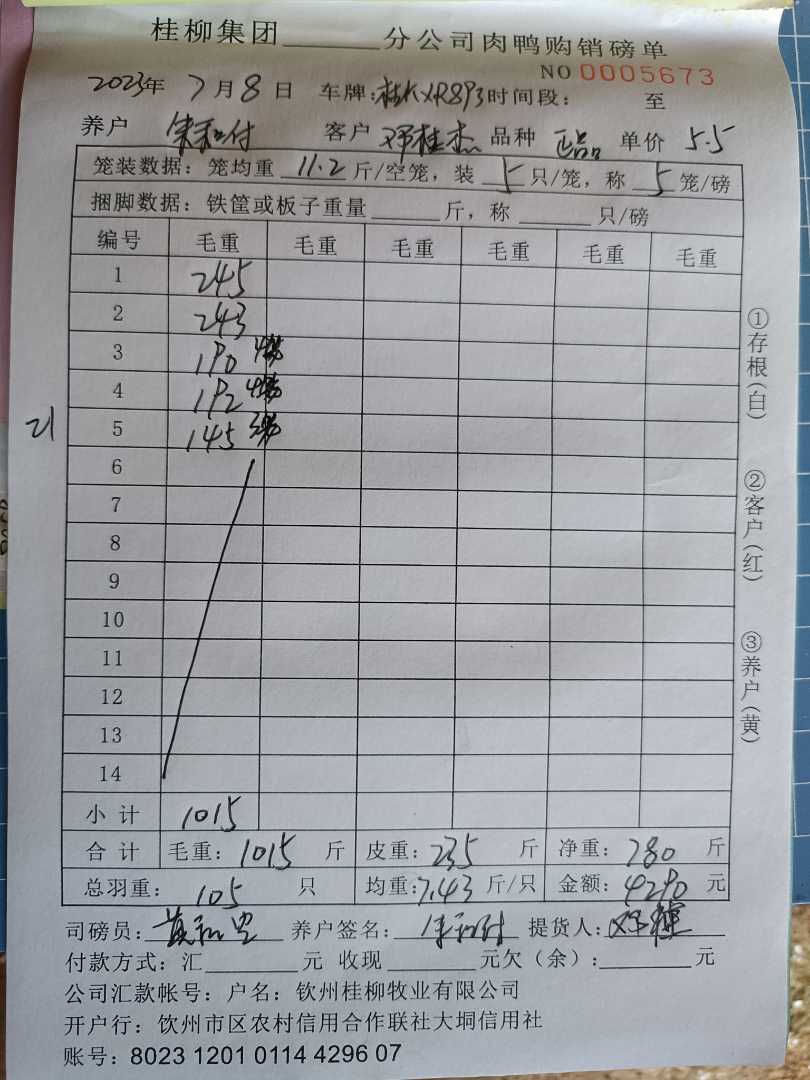 桂柳集团______分公司肉鸭购销磅单
NO 0005673
2023年 7月8日 车牌:桂KXR893 时间段: 至
养户 朱和付 客户 邓桂杰 品种 正品 单价 5.5
笼装数据:笼均重 11.2 斤/空笼,装 5 只/笼,称 5 笼/磅
捆脚数据:铁筐或板子重量______斤,称______只/磅
编号 毛重 毛重 毛重 毛重 毛重 毛重
1 245
2 243
3 190 4笼
4 192 4笼
21
5 145 3笼
6
7
8
9
10
11
12
13
14
小计 1015
合计 毛重:1015 斤 皮重:235 斤 净重:780 斤
总羽重:105 只 均重:7.43 斤/只 金额:4290 元
司磅员: 养户签名:朱和付 提货人:
付款方式:汇______元 收现______元欠(余):______元
公司汇款帐号:户名:钦州桂柳牧业有限公司
开户行:饮州市区农村信用合作联社大垌信用社
账号:8023 1201 0114 4296 07
①存根(白)
②客户(红)
③养户(黄)